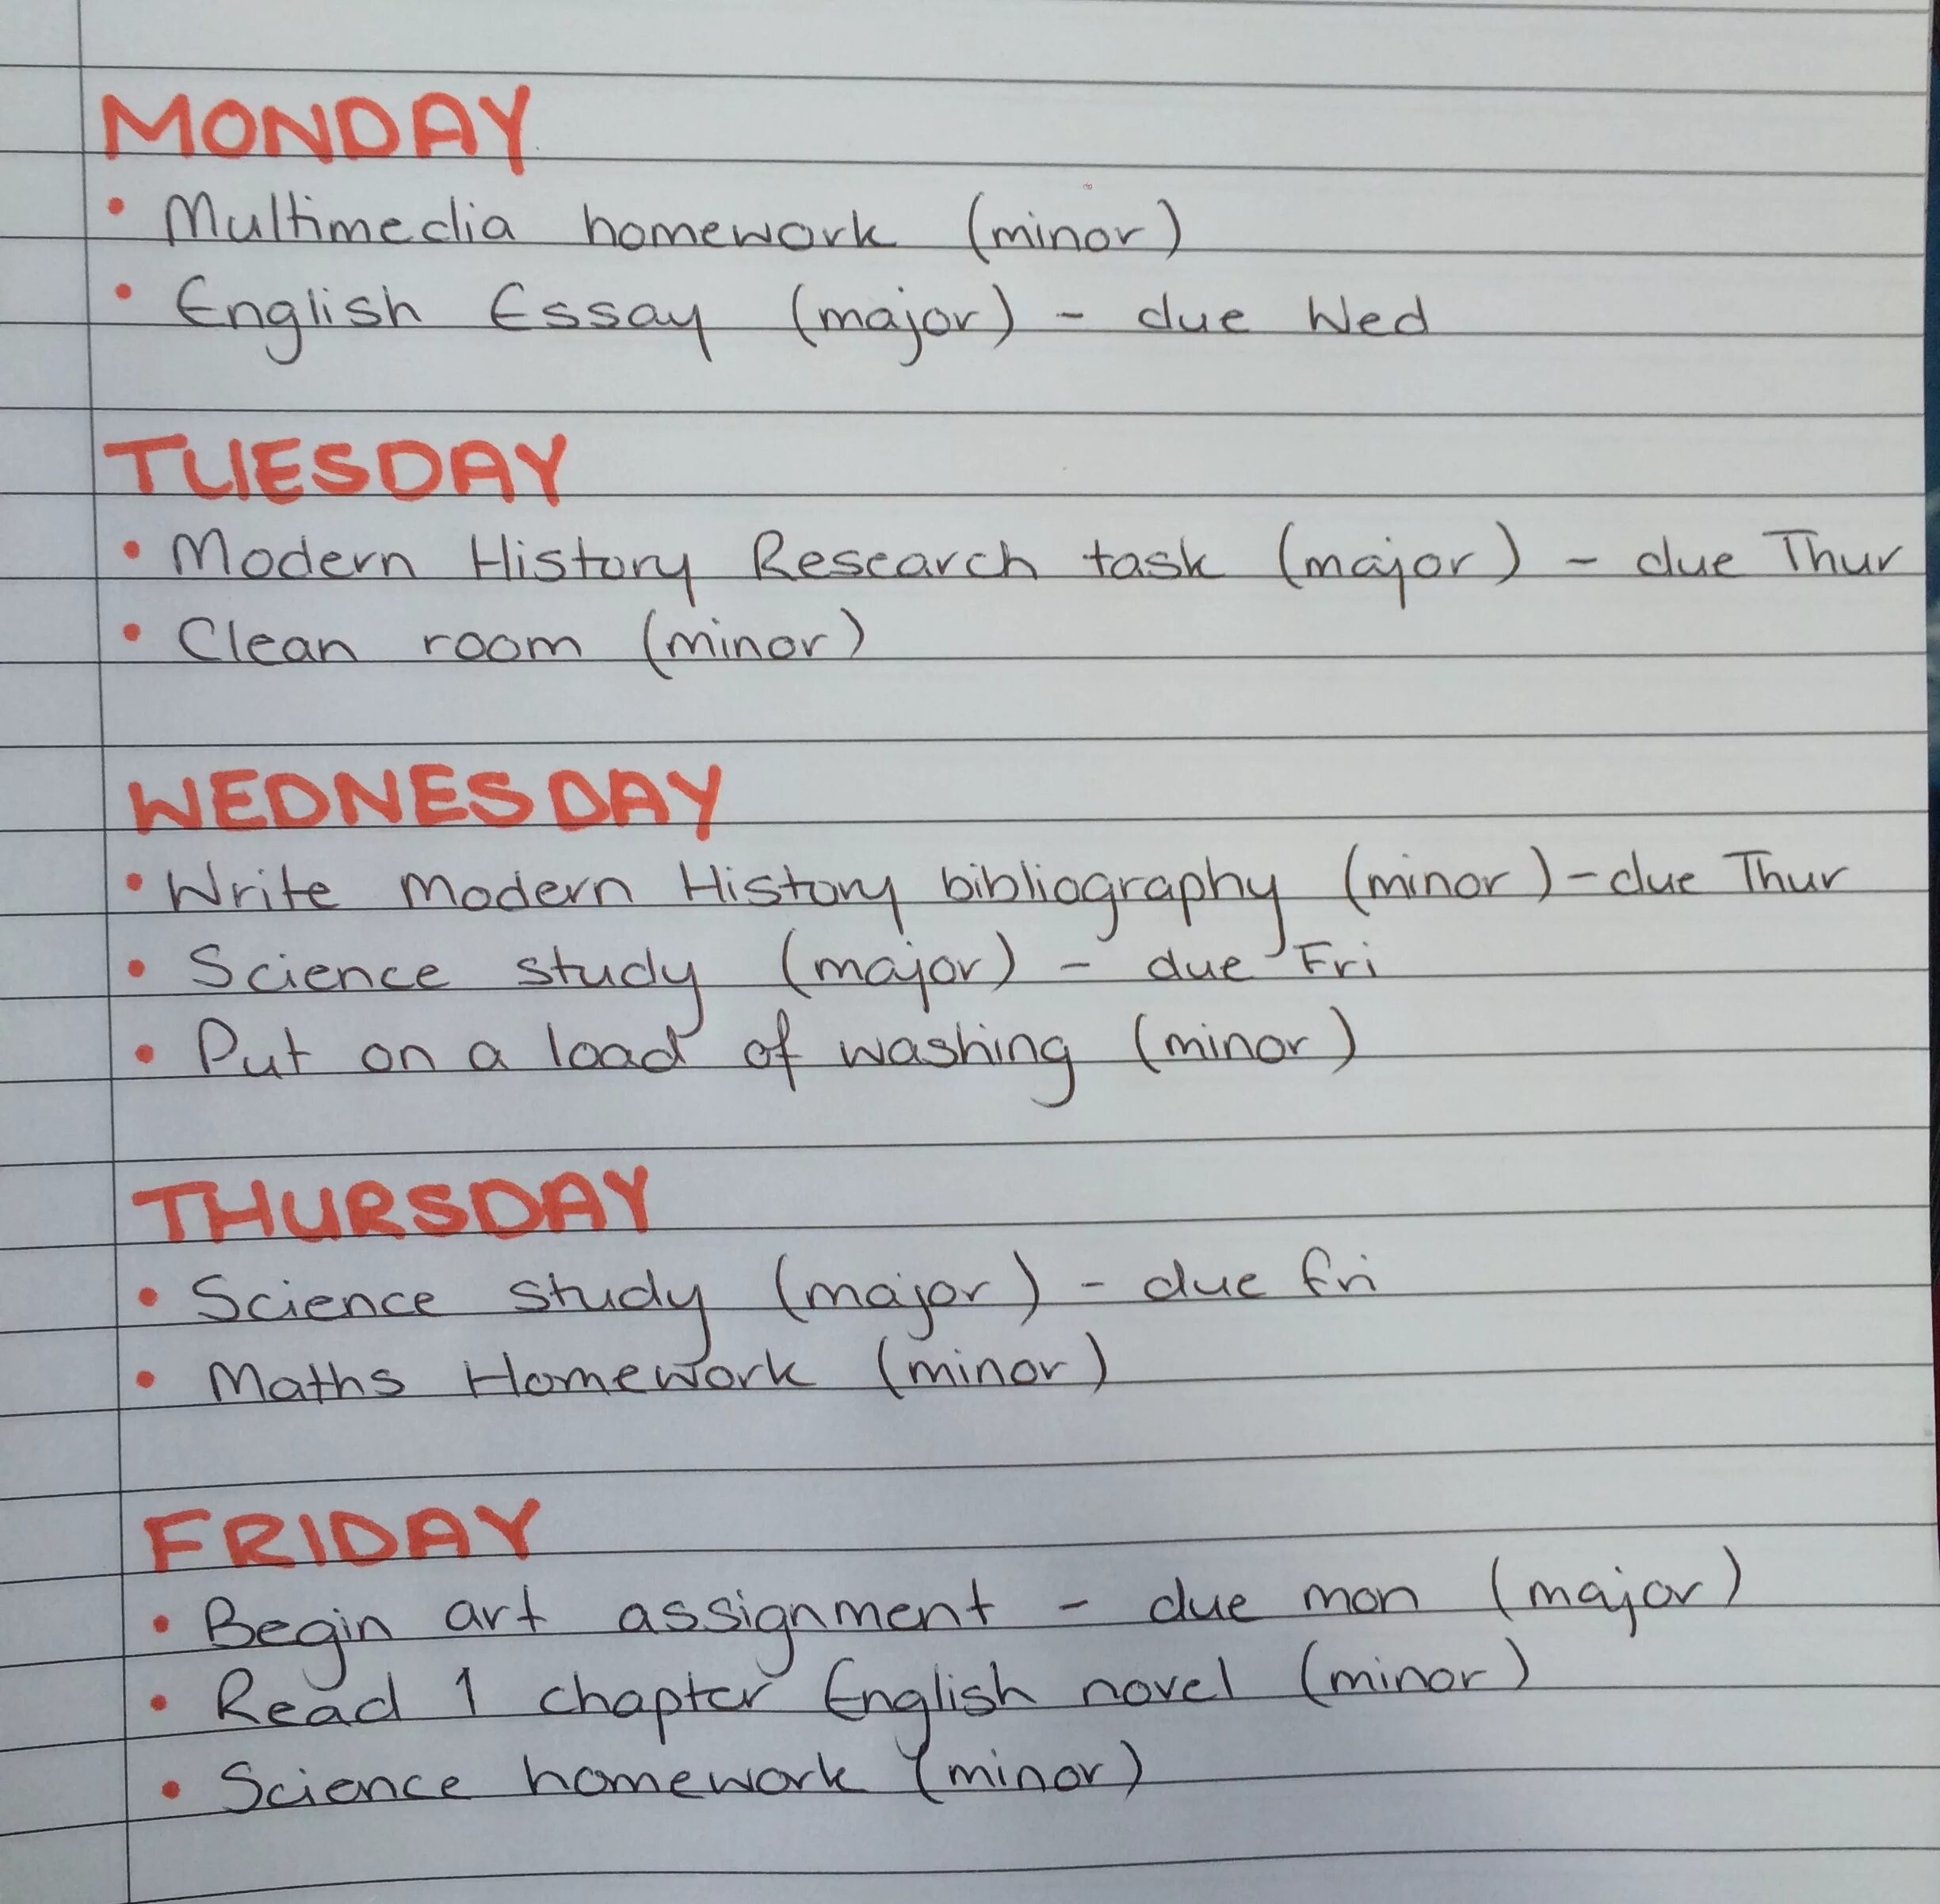 MONDAY
• Multimedia homework (minor)
• English Essay (major) - due Wed
TUESDAY
• Modern History Research task (major) - due Thur
• Clean room (minor)
WEDNESDAY
• Write Modern History bibliography (minor) - due Thur
• Science study (major) - due Fri
• Put on a load of washing (minor)
THURSDAY
• Science study (major) - due fri
• Maths Homework (minor)
FRIDAY
• Begin art assignment - due mon (major)
• Read 1 chapter English novel (minor)
• Science homework (minor)